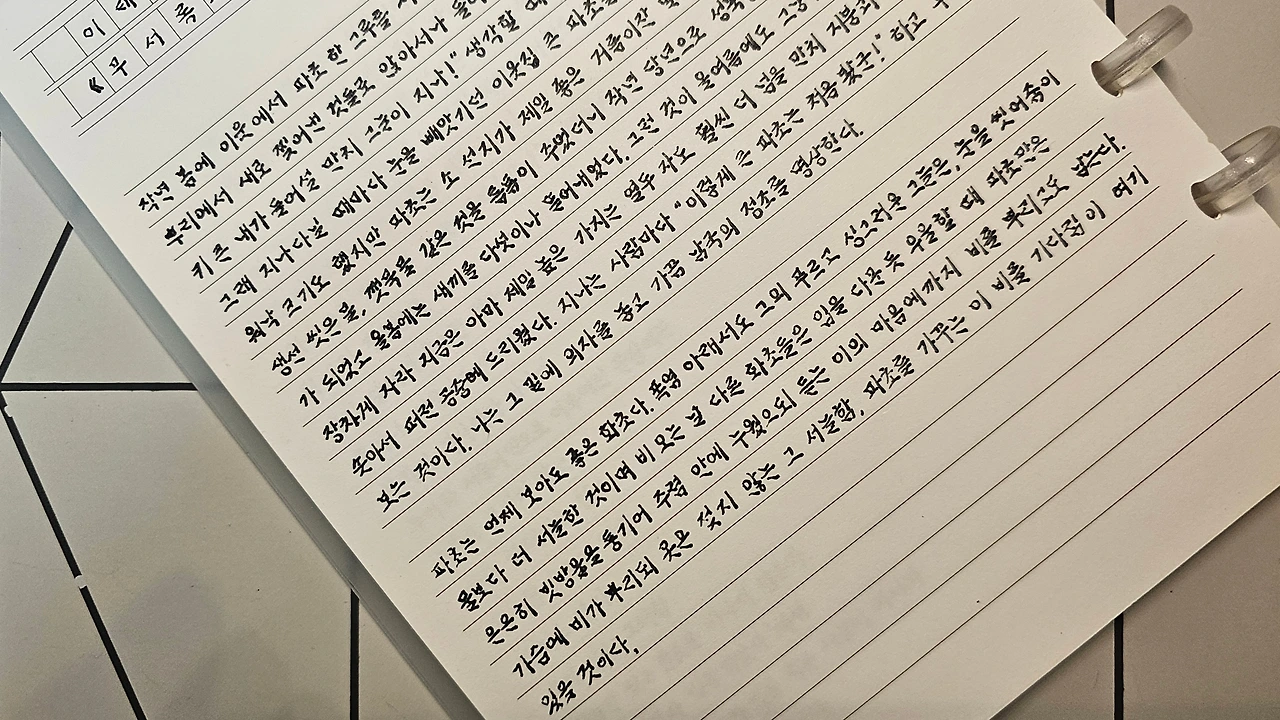 이 태
《 무 서 록
작년 봄에 이웃에서 파초 한 그루를
뿌리에서 새로 찢어낸 것들로 앉아서나
키 큰 내가 들어설 만치 그늘이 지나!" 생각할 때
그래 지나다닐 때마다 눈을 빼앗기던 이웃집 큰
워낙 크기도 했지만 파초는 소 선지가 제일 좋은 거름이란
생선 씻은 물, 깻묵물 같은 것을 틈틈이 주었더니 작년 당년으로
가 되었고 올봄에는 새끼를 다섯이나 뜯어내었다. 그런 것이 올여름에도
장차게 자라 지금은 아마 제일 높은 가지는 열두 자도 훨씬 더 넘을 만치 지붕과
솟아서 퍼런 공중에 드리웠다. 지나는 사람마다 "이렇게 큰 파초는 처음 봤군!" 하고
보는 것이다. 나는 그 밑에 의자를 놓고 가끔 남국의 정조를 명상한다.
파초는 언제 보아도 좋은 화초다. 폭염 아래서도 그의 푸르고 싱그러운 그늘은, 눈을 씻어줌이
물보다 더 서늘한 것이며 비 오는 날 다른 화초들은 입을 다문 듯 우울할 때 파초만은
은은히 빗방울을 퉁기어 주렴 안에 누웠으되 듣는 이의 마음에까지 비를 뿌리고도 남는다.
가슴에 비가 뿌리되 옷은 젖지 않는 그 서늘함, 파초를 가꾸는 이 비를 기다림이 여기
있을 것이다.